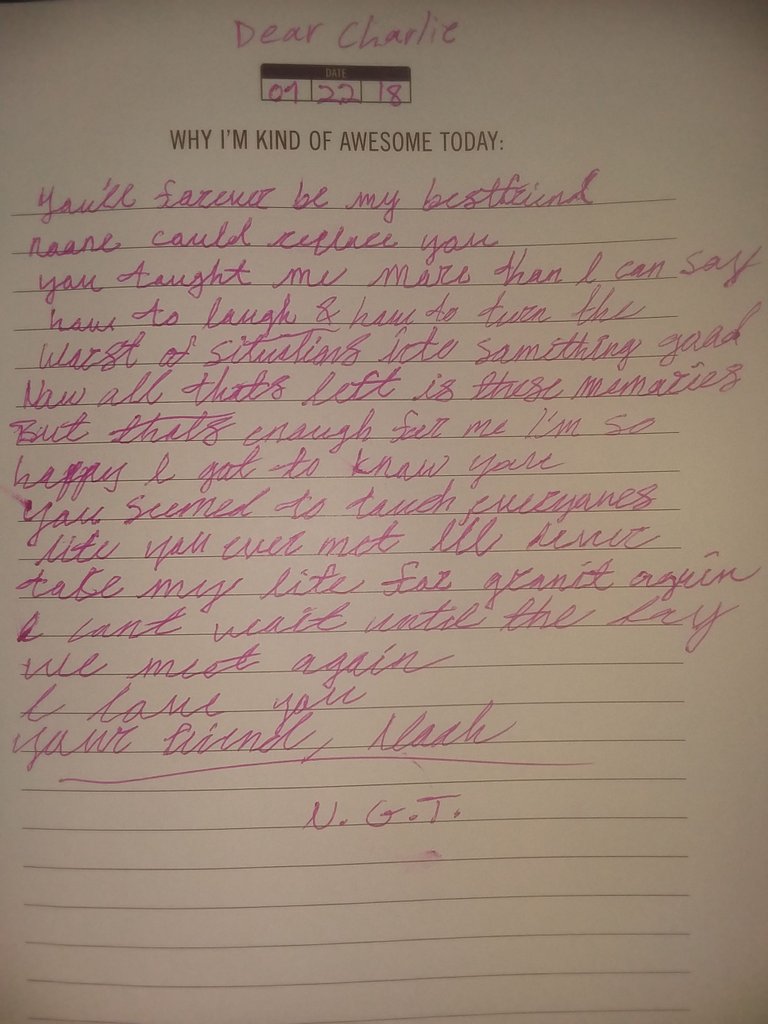 Dear Charlie
DATE
09 22 18
WHY I'M KIND OF AWESOME TODAY:
You'll forever be my bestfriend
noone could replace you
you taught me more than I can say
how to laugh & how to turn the
worst of situations into something good
Now all thats left is these memories
But thats enough for me I'm so
happy I got to know you
You seemed to touch everyones
life you ever met I'll never
take my life for granit again
I cant wait until the day
we meet again
I love you
your friend, Noah
N. G. T.